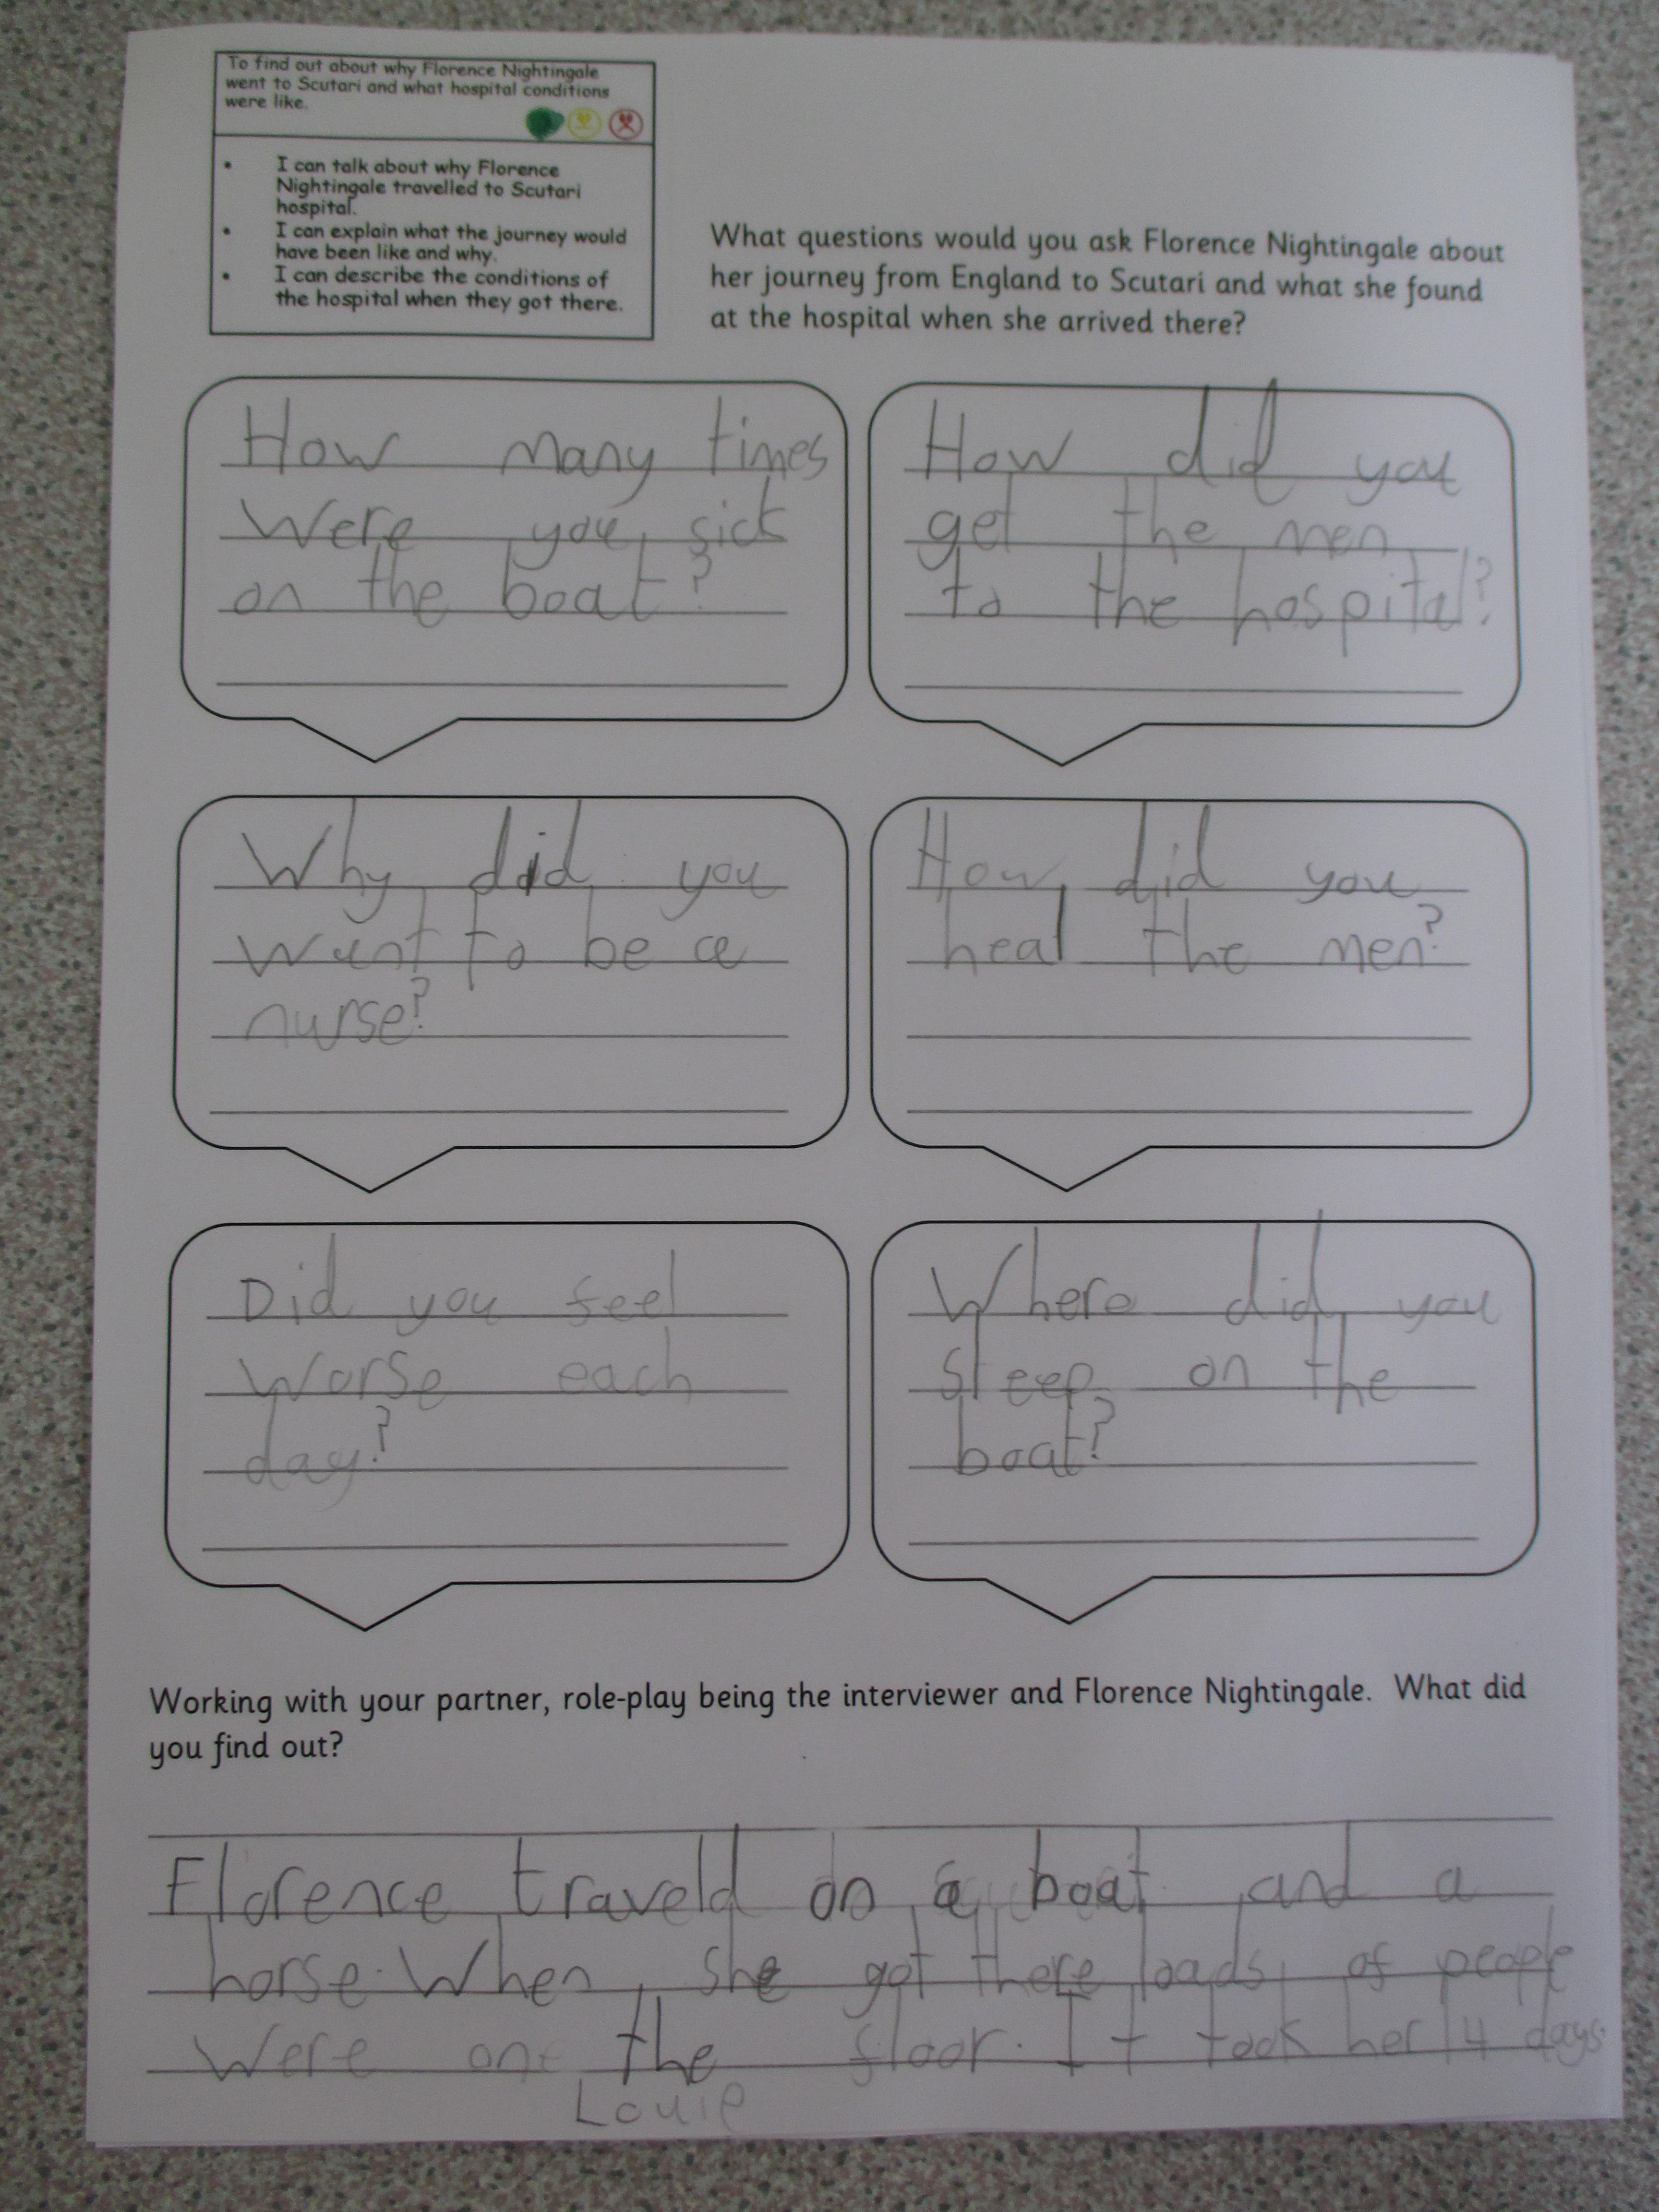 To find out about why Florence Nightingale
went to Scutari and what hospital conditions
were like.
• I can talk about why Florence
Nightingale travelled to Scutari
hospital.
• I can explain what the journey would
have been like and why.
• I can describe the conditions of
the hospital when they got there.
What questions would you ask Florence Nightingale about
her journey from England to Scutari and what she found
at the hospital when she arrived there?
How many times
were you sick
on the boat?
How did you
get the men
to the hospital?
Why did you
want to be a
nurse?
How did you
heal the men?
Did you feel
worse each
day?
Where did you
sleep on the
boat?
Working with your partner, role-play being the interviewer and Florence Nightingale. What did
you find out?
Florence traveld on a boat and a
horse. When she got there loads of people
were one the floor. It took her 14 days.
Louie